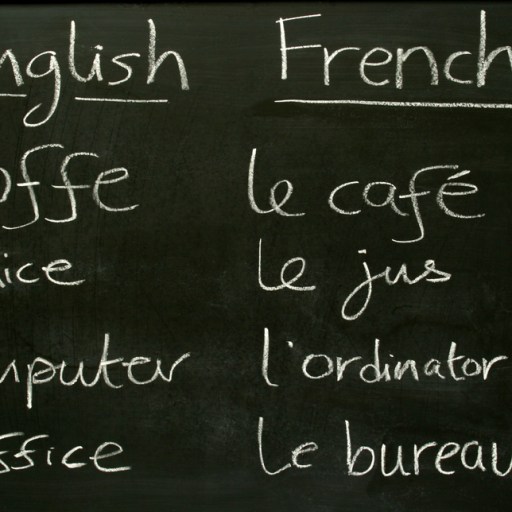 nglish French
offe le café
ice le jus
mputer l'ordinator
ffice le bureau